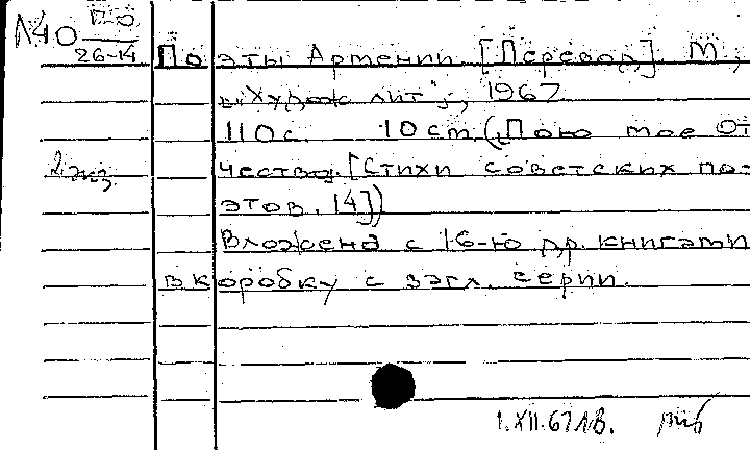 П-0
N40 26-14
Поэты Армении. [Перевод]. М.,
"Худож лит", 1967
110с. 10 см. (Пою мое От
чество. [Стихи советских по-
этов, 14])
2 экз.
Вложена с 16-ю др. книгами
в коробку с загл. серии.
1.XII.67